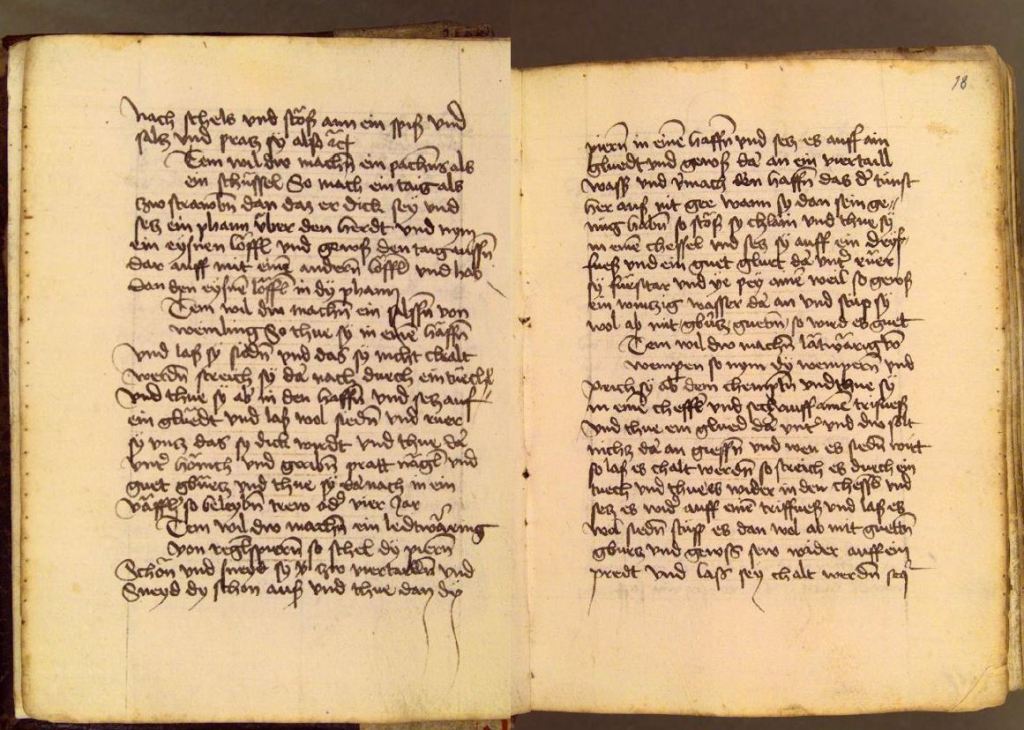 nach schels vnd stöß ann ein spiß vnd
saltz vnd pratz sy also etc
Item wil dw machñ ein pachens als
ein schüssel So mach ein taig als
zwo strawbñ dan daz er dick sey vnd
setz ein phann über den herdt vnd nym
ein eysnen löffl vnd geuß den taig aussñ
dar auff mit eine andern löffl vnd hab
dan den eysnē löffl in dy phann
Item wil dw machñ ein salssñ von
weinling So thue sy in eine häffñ
vnd laß sy siedñ vnd das sy nicht chalt
werdñ streich sy dar nach durch ein tüechl
vnd thue sy ab in den haffñ vnd setz auf
ein glüedt vnd laß wol siedñ vnd ruer
sy vntz das sy dick wirdt vnd thue dar
vnter hönich vnd geribñ pratt nägl vnd
guet gbürtz vnd thue sy dar nach in ein
väßl so beleybñ trew oder vier Jar
Item wil dw machñ ein ledtwäring
von reglspiernn so schel dy piernn
Schön vnd sneyd sy zw viertaillñ vnd
Sneyd dy schön auß vnd thue dan dy
18
piernn in eine haffñ vnd setz es auff ain
gluedt vnd geuß dar an ein viertaill
wasser vnd vermach den haffñ das der tünst
her auß nit gee wann sy dan sein ge-
nüg habñ so stöß sy chlain vnd thue sy
in eine chessel vnd setz sy auff ein dryf-
fueß vnd ein guet gluet dar vnter rüer
sy fuersitar vnd ye pey aine weil so geuß
ein wintzig wasser dar an vnd stüp sy
wol ab mit gbürtz guetñ so wird es guet
Item wil dw machñ lätwäring von
wempen so nym dy wempernn vnd
prich sy ab dem chempñ vnd thue sy
in eine chessl vnd setz auff aine trifuess
vnd thue ein glued dar vnter vnd dw solt
nichtz dar an giessñ vnd wen es siedñ wirt
so laß es chalt werdñ so streich es durch ein
tuech vnd thues wider in den chessl vnd
setz es wider auff eine triffueß vnd laß es
wol siedñ stüpp es dan wol ab mit guetñ
gbürtz vnd gewss sew wider auff ein
predt vnd lass sey chalt werdñ